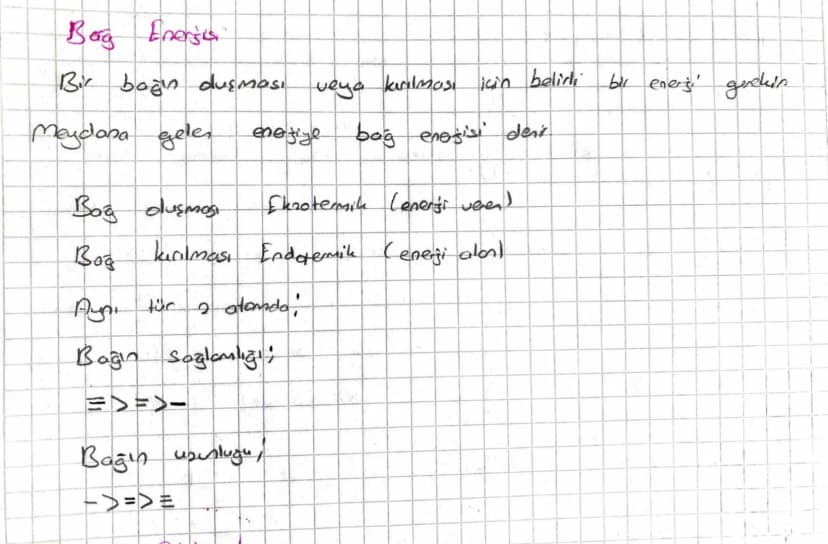 Bağ Enerjisi
Bir bağın oluşması veya kırılması için belirli bir enerji gerekir
Meydana gelen enerjiye bağ enerjisi denir
Bağ oluşması Ekzotermik (enerji veren)
Bağ kırılması Endotermik (enerji alan)
Aynı tür 2 atomda;
Bağın sağlamlığı;
≡>=>-
Bağın uzunluğu;
->=>≡